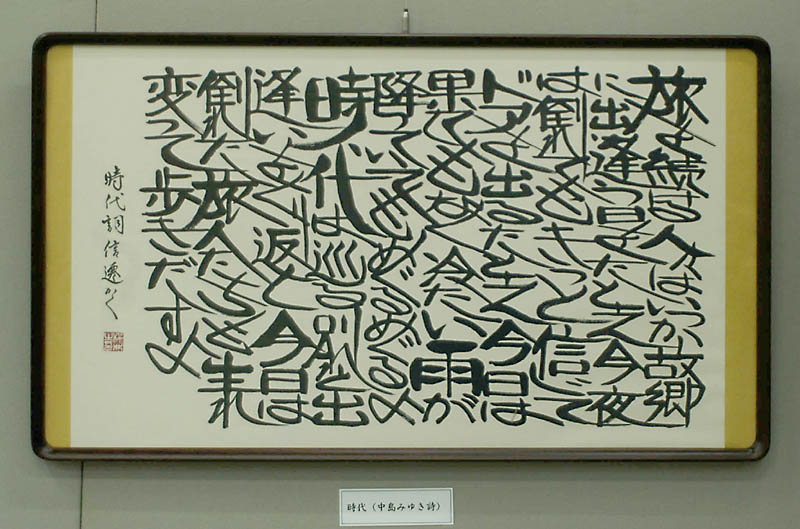 旅を続ける人々はいつか故郷
に出逢う日をたとえ今夜
は倒れてもきっと信じて
ドアを出るたとえ今日は
果てしもなく冷たい雨が
降っていてもめぐるめぐるよ
時代は巡る別れと出
逢いをくり返し今日は
倒れた旅人たちも生れ
変って歩きだすよ
時代詞 かく
時代（中島みゆき詩）